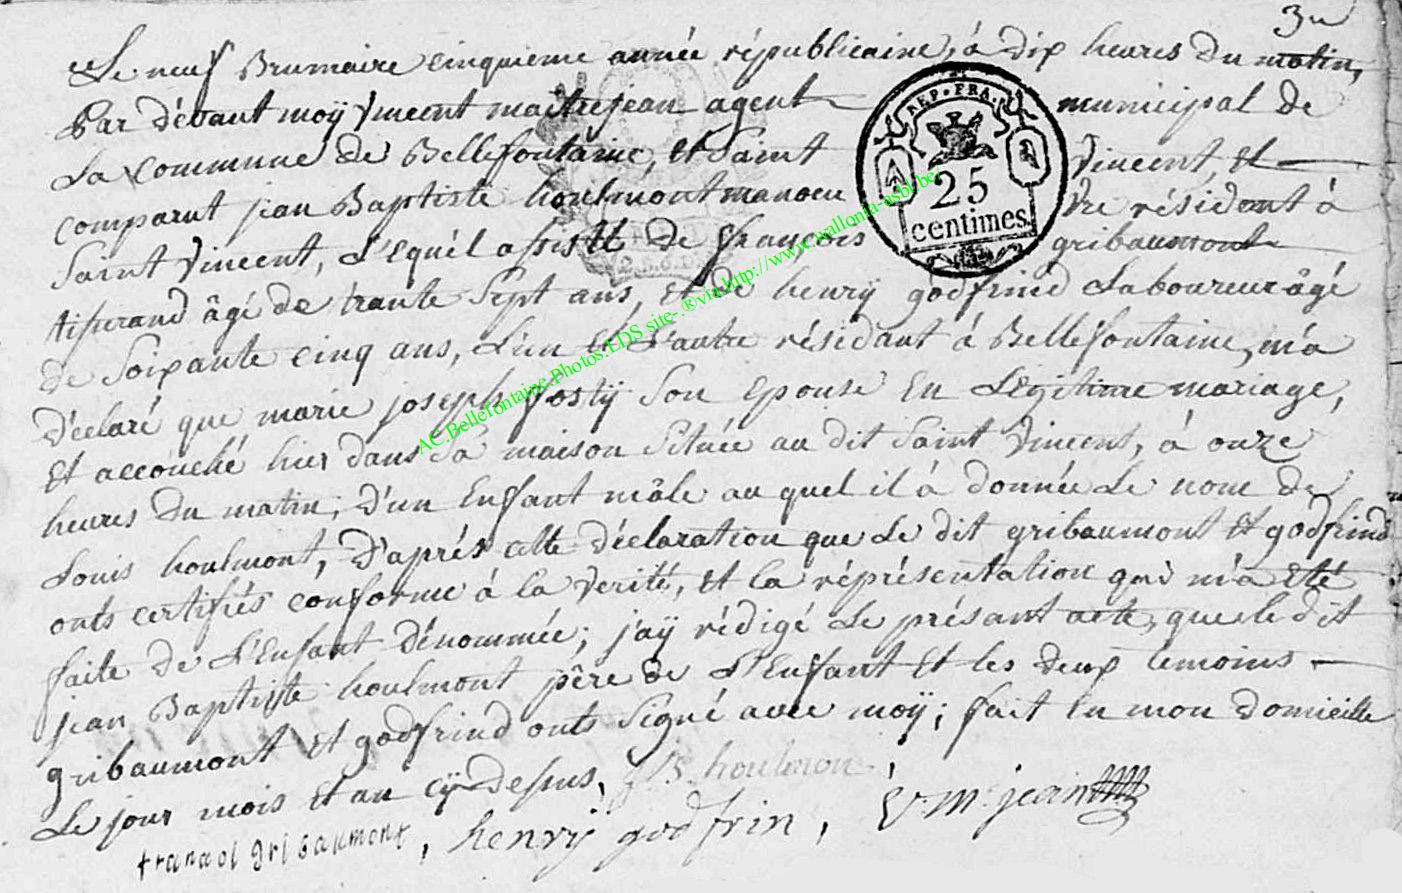 3e
Le neuf Brumaire cinquieme année républicaine, à dix heures du matin,
Par dévant moÿ Vincent maitrejean agent municipal de
La commune de Bellefontaine, et Saint Vincent, et
comparut jean Baptiste houlmont manoeuvre résident à
Saint Vincent, L'equél assisté de françois gribaumont
tisserand âgé de trante sept ans, et de henrÿ godfrind Laboureur âgé
de soixante cinq ans, L'un et L'autre résidant à Bellefontaine, m'a
déclaré que marie joseph fostÿ son epouse en Légitime mariage,
et accouché hier dans sa maison située au dit Saint Vincent, à onze
heures du matin, d'un Enfant mâle au quel il à donnée Le nom de
Louis houlmont, d'aprés cette déclaration que Le dit gribaumont et godfrind
onts certifiés conforme à la verité, et la réprésentation qui m'a eté
faite de L'Enfant dénommée; j'aÿ rédigé Le présant acte, que le dit
jean Baptiste houlmont pêre de L'Enfant et les deux témoins
gribaumont et godfrind onts signé avec moÿ; fait en mon domicille
Le jour mois et an cÿ-dessus, J B houlmon,
franaoi gribaumont, henrÿ godfrin, V. M.jean
REP. FRA.
25
centimes.
AC.Bellefontaine.Photos.EDS site-.®via-http://www.wallonia-asbl.be